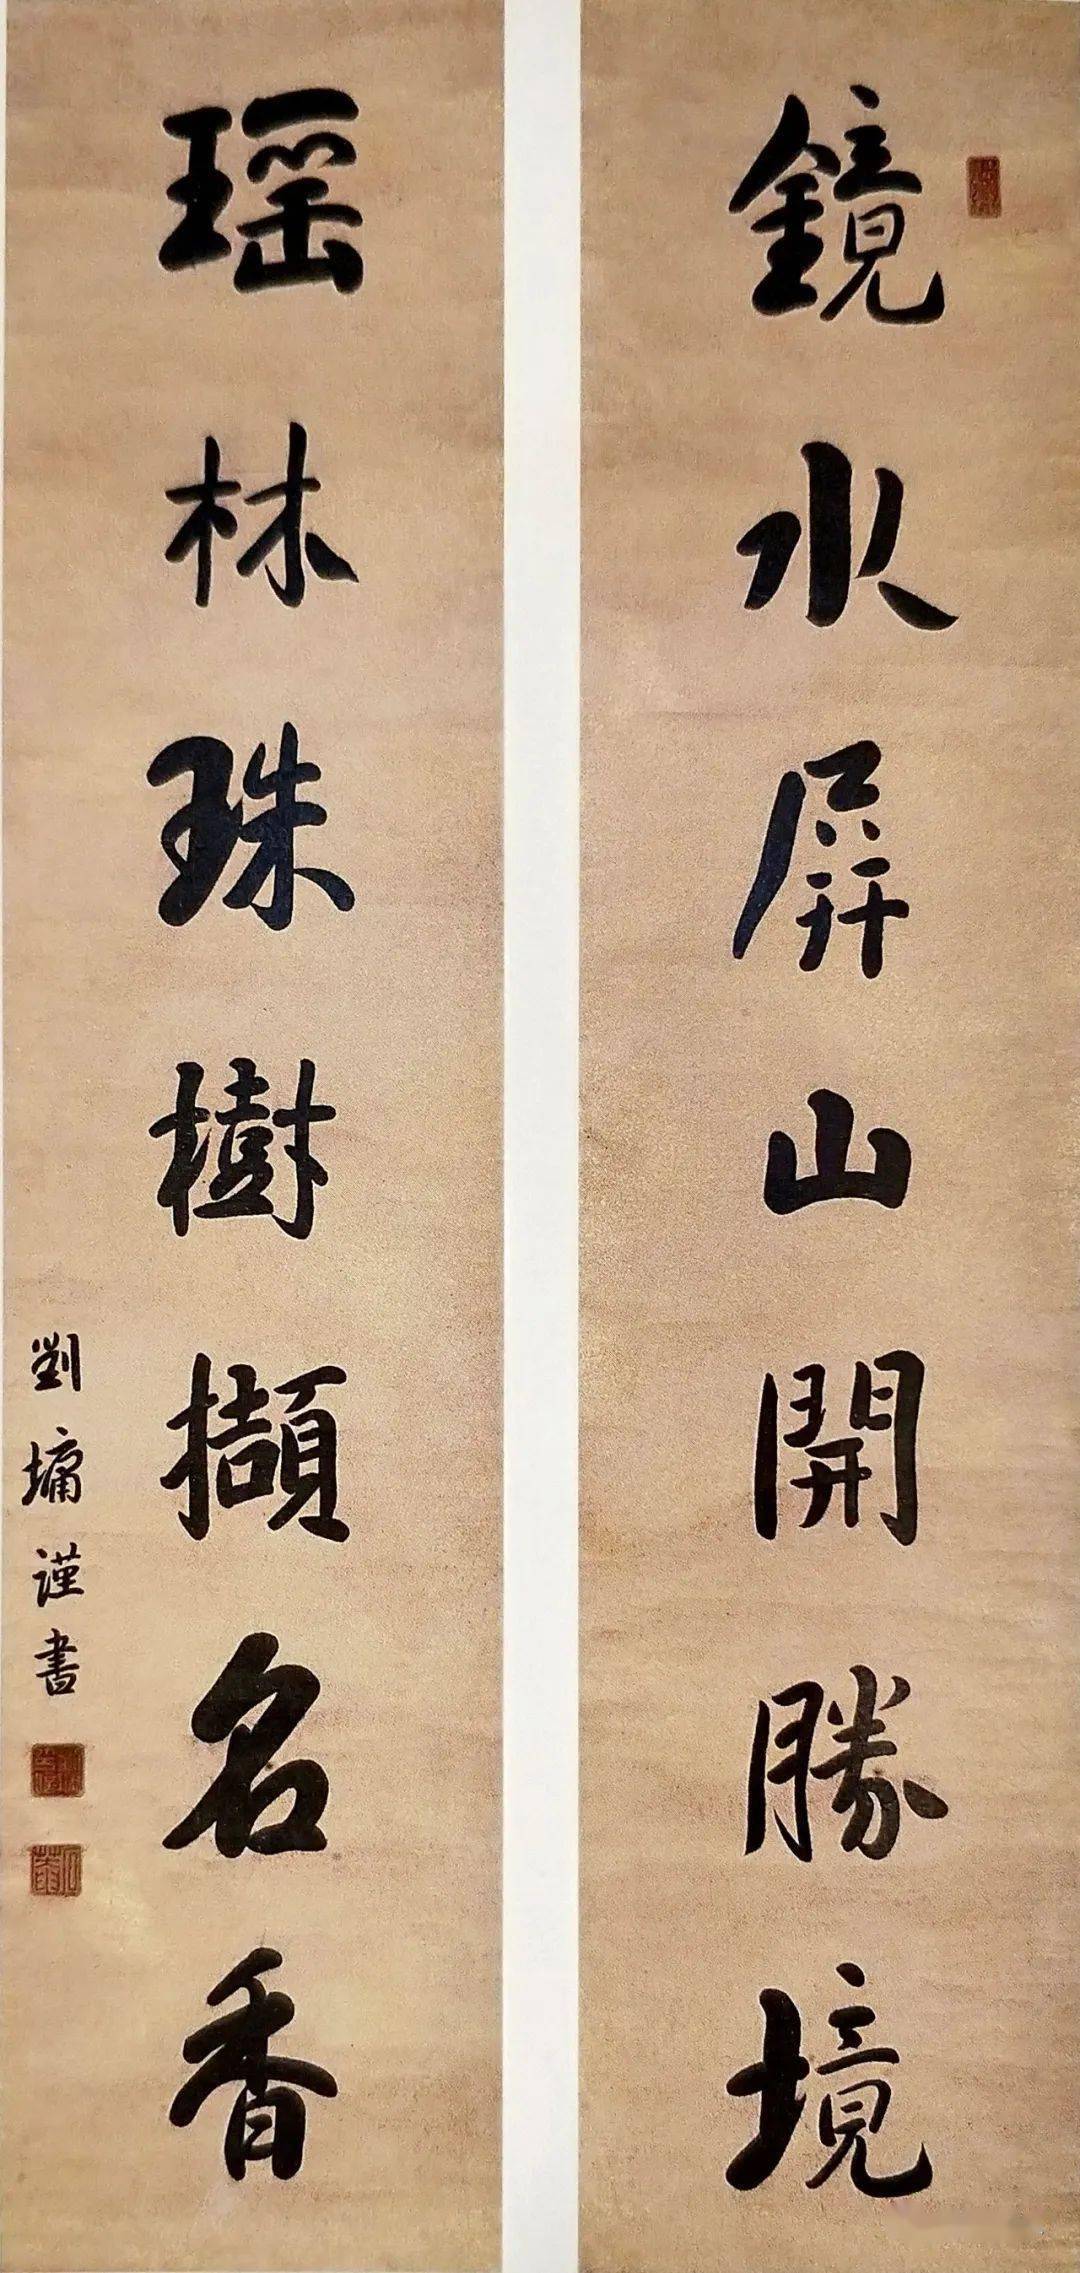 鏡水屏山開勝境
瑶林珠樹擷名香
劉墉謹書